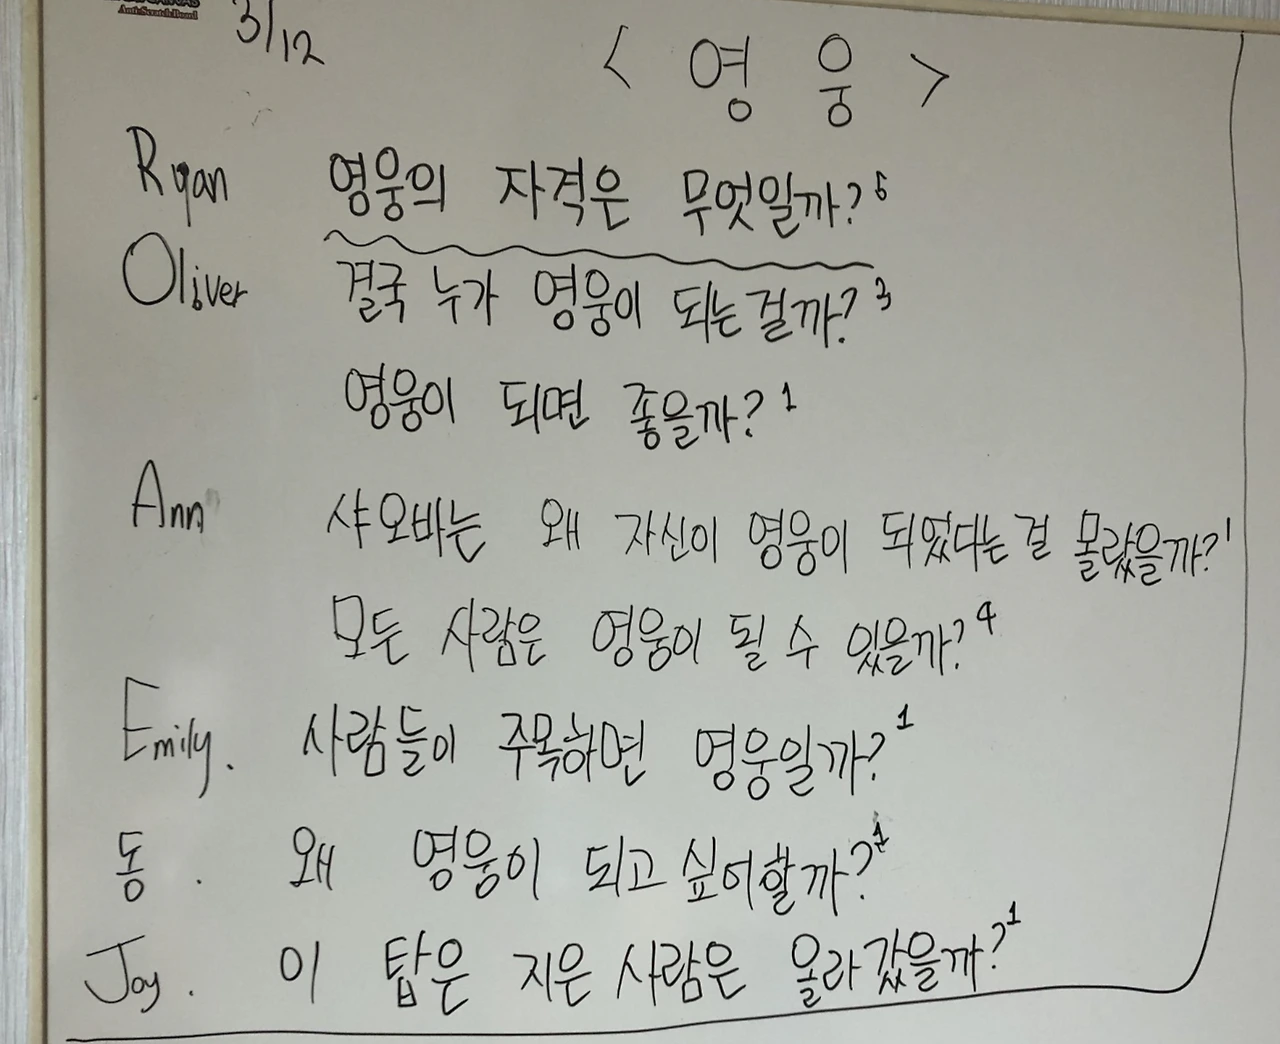 3/12
< 영 웅 >
Ryan 영웅의 자격은 무엇일까? 5
Oliver 결국 누가 영웅이 되는걸까? 3
영웅이 되면 좋을까? 1
Ann 샤오바는 왜 자신이 영웅이 되었다는 걸 몰랐을까? 1
모든 사람은 영웅이 될 수 있을까? 4
Emily. 사람들이 주목하면 영웅일까? 1
동. 왜 영웅이 되고 싶어할까? 1
Joy. 이 탑은 지은 사람은 올라갔을까? 1